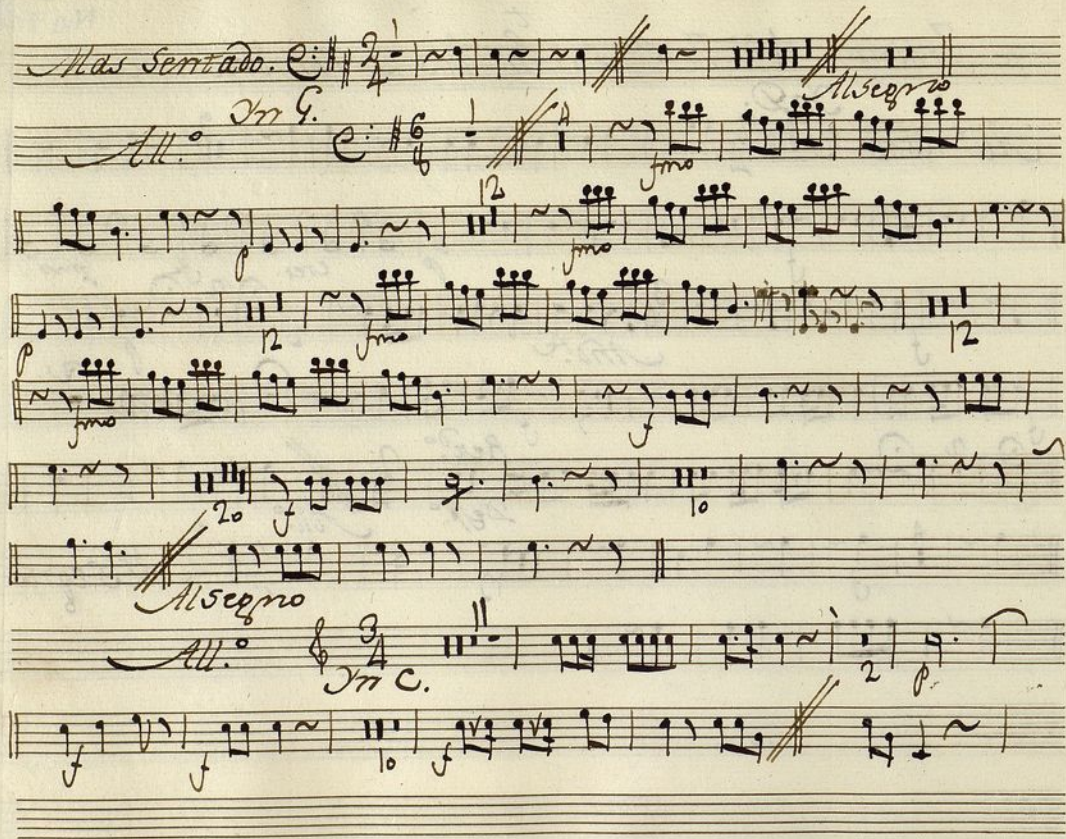 Mas Sentado. 2/4
Al Segno
In G.
All.º 6/8 4
fmo
12
p fmo
p 12 fmo 12
fmo f
20 f 10
Al Segno
All.º 3/4 11
In C. 2 p.
f f 10 f